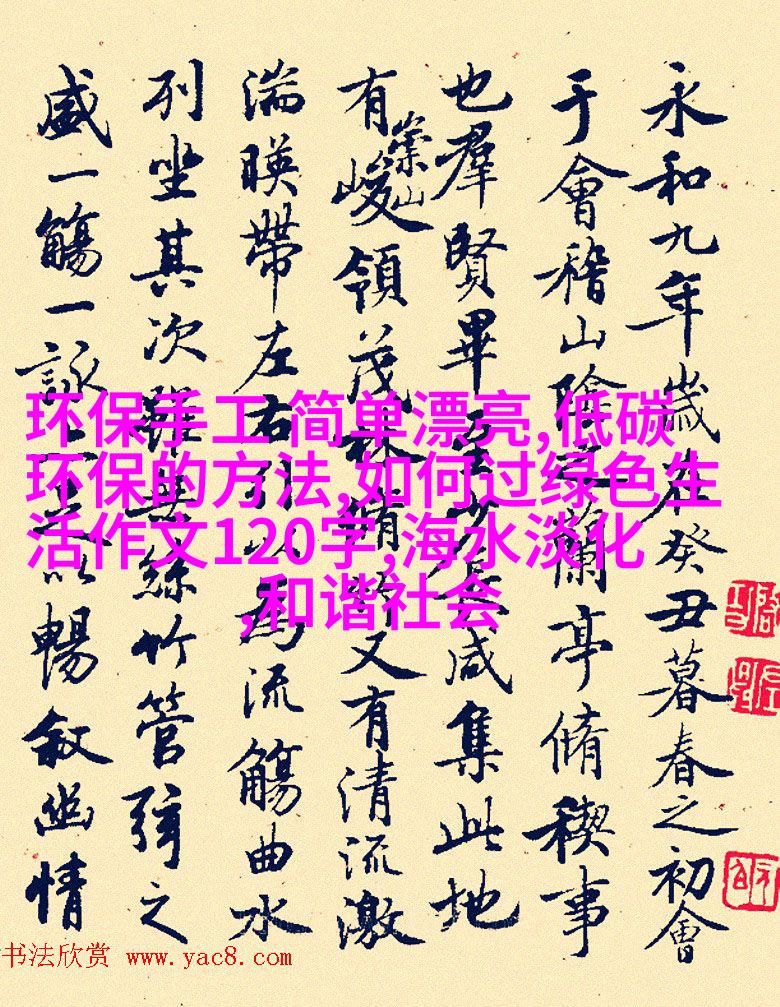 永和九年歲在癸丑暮春之初會
于會稽山陰之蘭亭脩稧事
也羣賢畢至少長咸集此地
有崇山峻領茂林脩竹又有清流激
湍暎帶左右引以為流觴曲水
列坐其次雖無絲竹管弦之
盛一觴一詠亦足以暢敘幽情
环保手工 简单漂亮,低碳
环保的方法,如何过绿色生
活作文120字,海水淡化
,和谐社会
书法欣赏 www.yac8.com